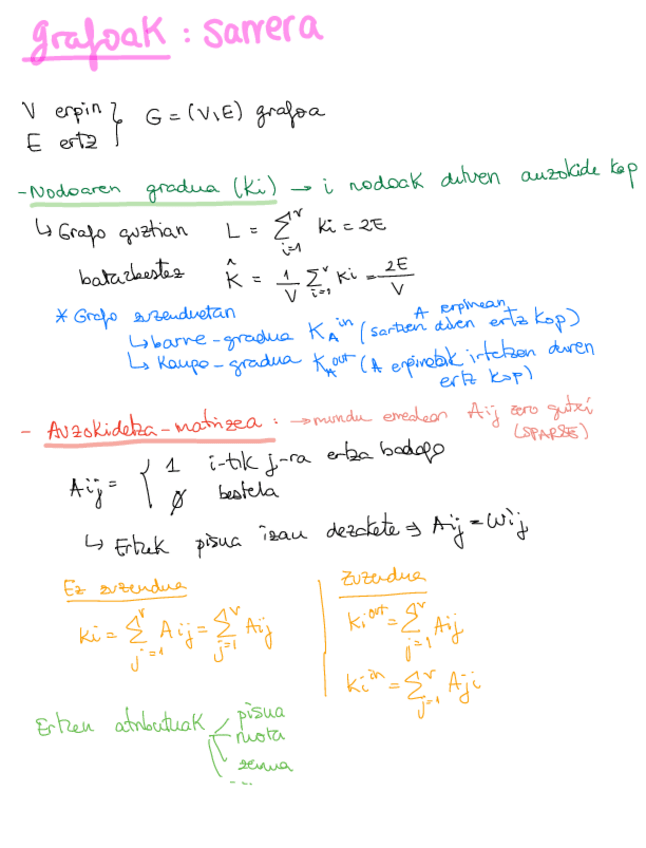 grafoak : sarrera
V erpin } G = (V,E) grafoa
E ertz
- Nodoaren gradua (ki) → i nodoak dituen auzokide kop
↳ Grafo guztian L = ∑_{i=1}^{V} ki = 2E
batazbestez K̂ = 1/V ∑_{i=1}^{V} ki = 2E/V
* Grafo zuzenduetan
↳ barne-gradua K_A^in (A erpinean sartzen diren ertz kop)
↳ Kanpo-gradua K_A^out (A erpinetik irtetzen diren
ertz kop)
- Auzokidetza-matrizea : → mundu errealean Aij zero gutxi
(SPARSE)
Aij = { 1 i-tik j-ra ertza badago
0 bestela
↳ Ertzek pisua izan dezakete ⇒ Aij = wij
Ez zuzendua
ki = ∑_{j=1}^{V} Aij = ∑_{j=1}^{V} Aij
Zuzendua
ki^out = ∑_{j=1}^{V} Aij
ki^in = ∑_{j=1}^{V} Aji
Ertzen atributuak pisua
mota
zeinua
...